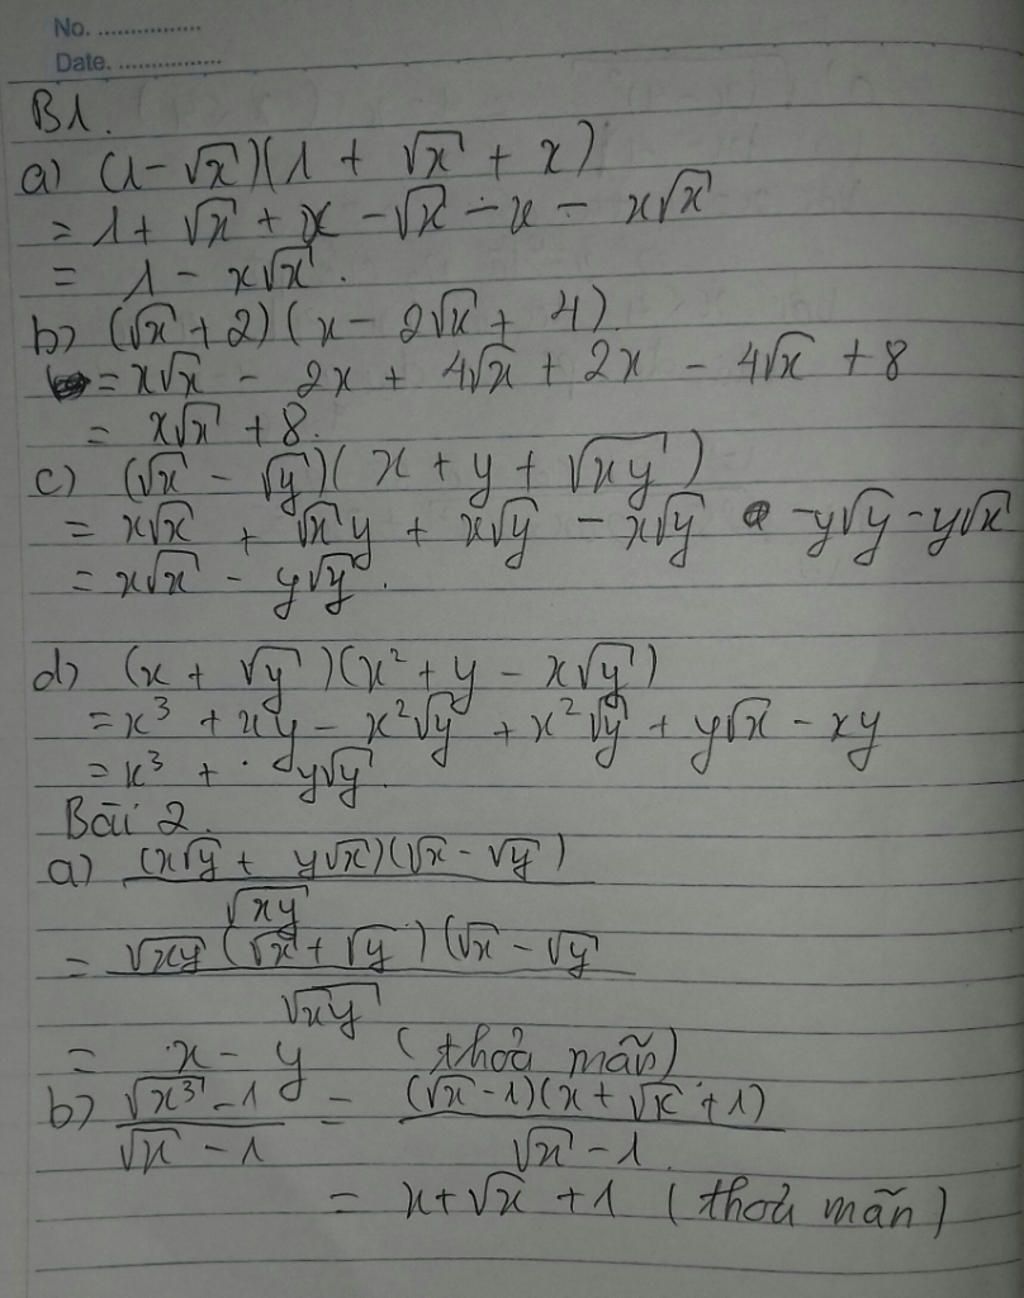 No. ................
Date. ................
B1.
a) (1 - √x)(1 + √x + x)
= 1 + √x + x - √x - x - x√x
= 1 - x√x.
b) (√x + 2)(x - 2√x + 4)
= x√x - 2x + 4√x + 2x - 4√x + 8
= x√x + 8.
c) (√x - √y)(x + y + √xy)
= x√x + √x y + x√y - x√y - y√y - y√x
= x√x - y√y.
d) (x + √y)(x² + y - x√y)
= x³ + xy - x²√y + x²√y + y√x - xy
= x³ + y√y.
Bài 2.
a) (x√y + y√x)(√x - √y)
√xy
= √xy (√x + √y)(√x - √y
√xy
= x - y (thoả mãn)
b) √x³ - 1 = (√x - 1)(x + √x + 1)
√x - 1 √x - 1
= x + √x + 1 (thoả mãn)